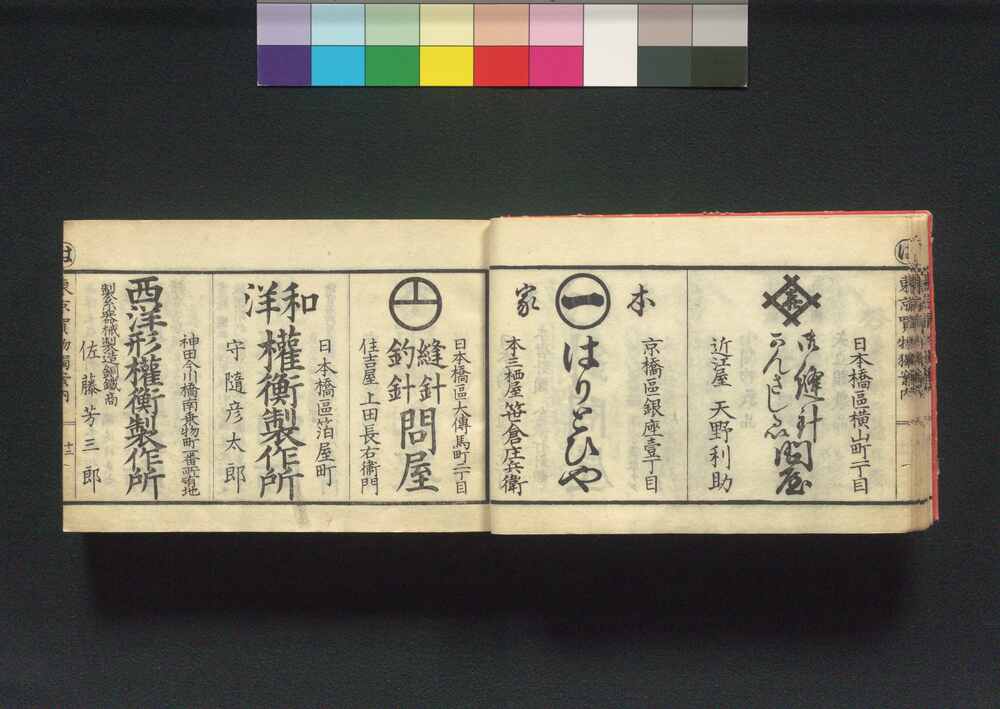 日本橋區横山町二丁目
縫針
問屋
近江屋 天野利助
京橋區銀座壹丁目
本
一
家
はりとひや
本三栖屋 笹倉庄兵衛
日本橋區大傳馬町二丁目
上
縫針
釣針
問屋
住吉屋 上田長右衞門
日本橋區箔屋町
和洋
權衡製作所
守隨彦太郎
神田今川橋南乗物町一番地
西洋形權衡製作所
製糸器械製造銅鐵商
佐藤芳三郎
は
東京買物獨案内
十三